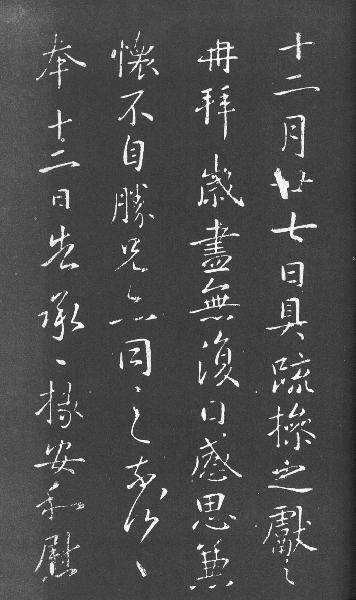 十二月廿七日具疏操之獻之
再拜歲盡無復日感思兼
懷不自勝兄亦同之奈何〻
奉十二日告承〻掾安和慰